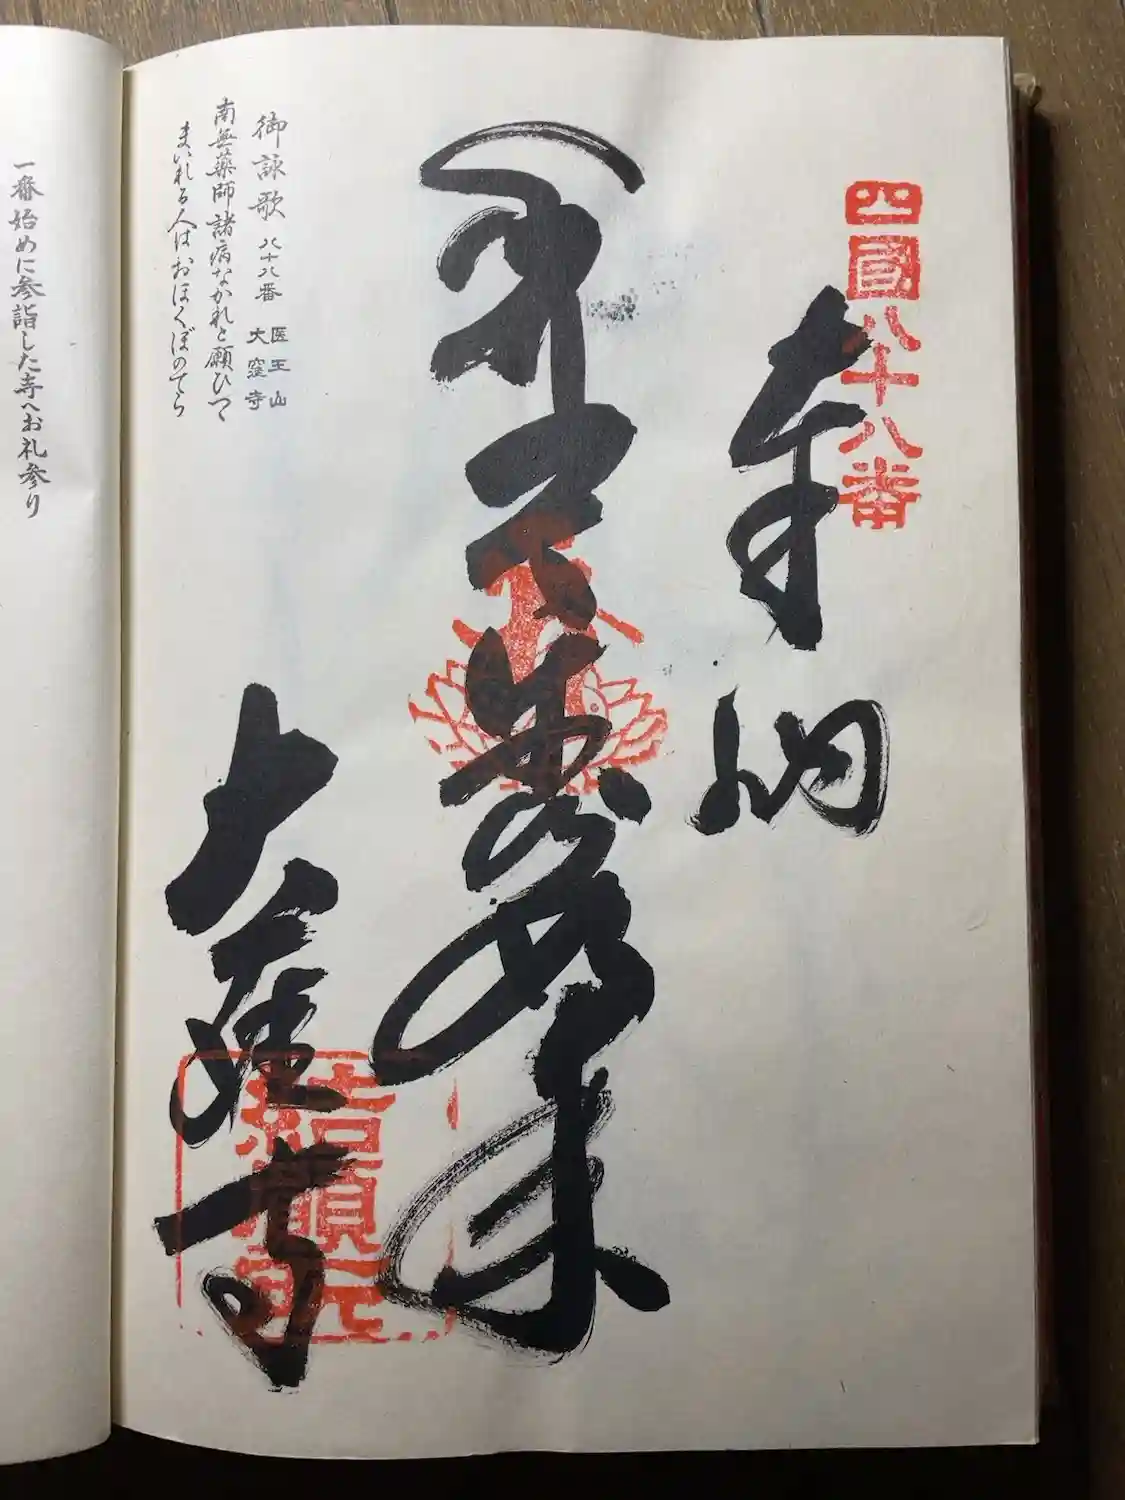 四國八十八番
奉納
大窪寺
結願所
御詠歌 八十八番 医王山 大窪寺
南無薬師諸病なかれと願ひつゝ
まいれる人はおほくぼのてら
一番始めに参詣した寺へお礼参り